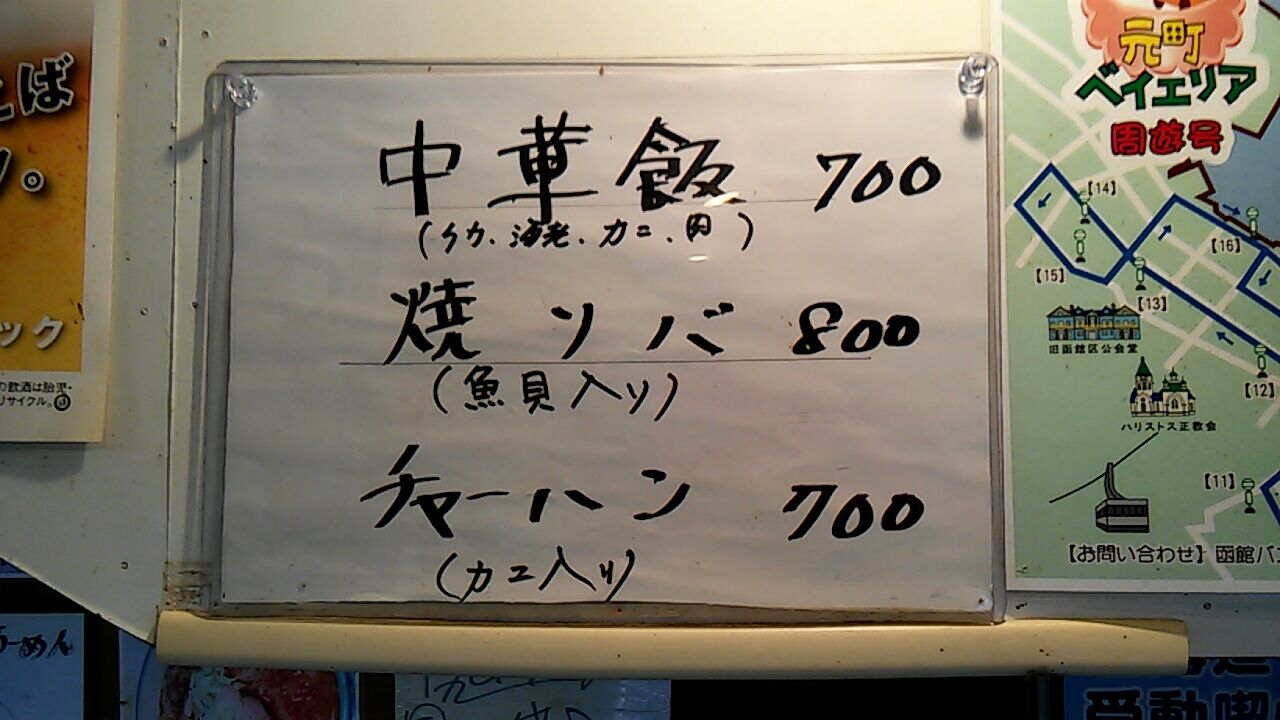 中華飯 700
(イカ、海老、カニ、肉)
焼ソバ 800
(魚貝入り)
チャーハン 700
(カニ入り)
元町
ベイエリア
周遊号
【14】
【16】
【15】
【13】
旧函館区公会堂
【12】
ハリストス正教会
【11】
【お問い合わせ】函館バ
ば
ック
の飲酒は胎児・
リサイクル。
らーめん
受動喫